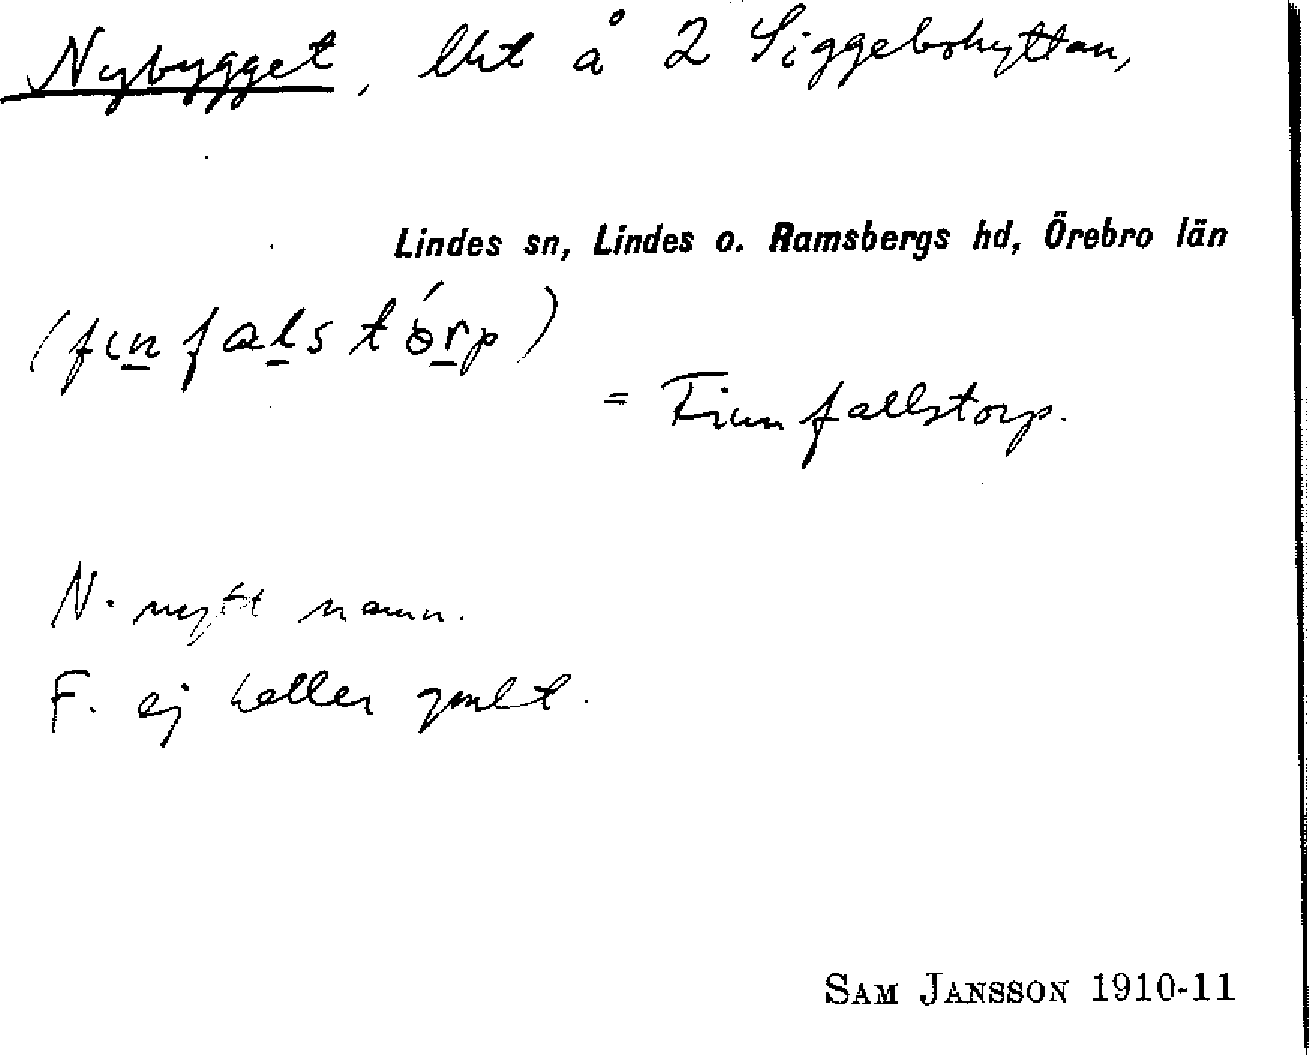 Nybygget, lht å 2 Siggebohyttan,
Lindes sn, Lindes o. Ramsbergs hd, Örebro län
(finfalstórp)
= Finnfallstorp.
N. nytt namn.
F. ej heller gmlt.
SAM JANSSON 1910-11